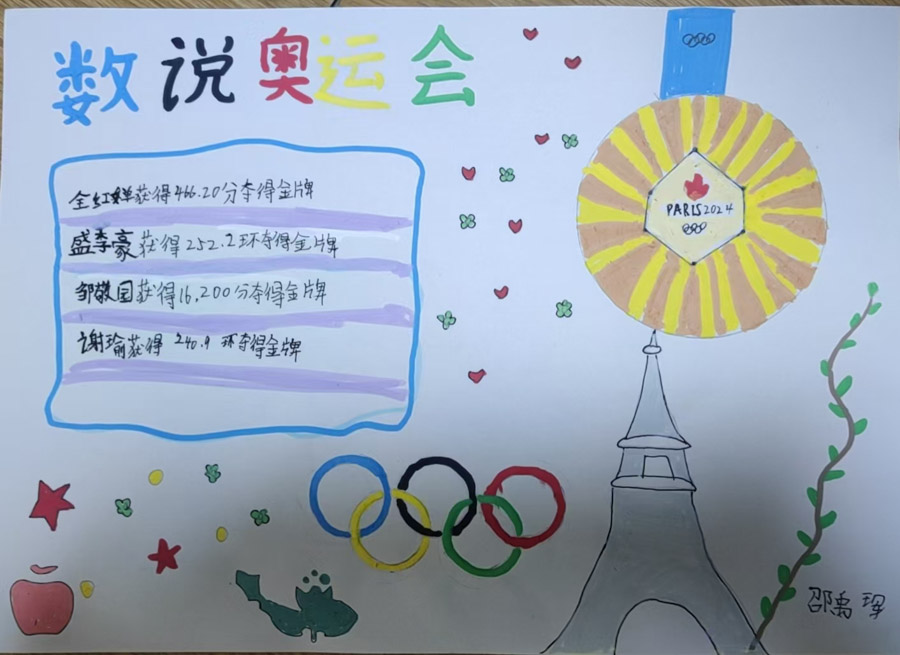 数说奥运会
全红婵获得466.20分夺得金牌
盛李豪获得252.2环夺得金牌
邹敬园获得16,200分夺得金牌
谢瑜获得240.9环夺得金牌
PARIS2024
邵禹珲